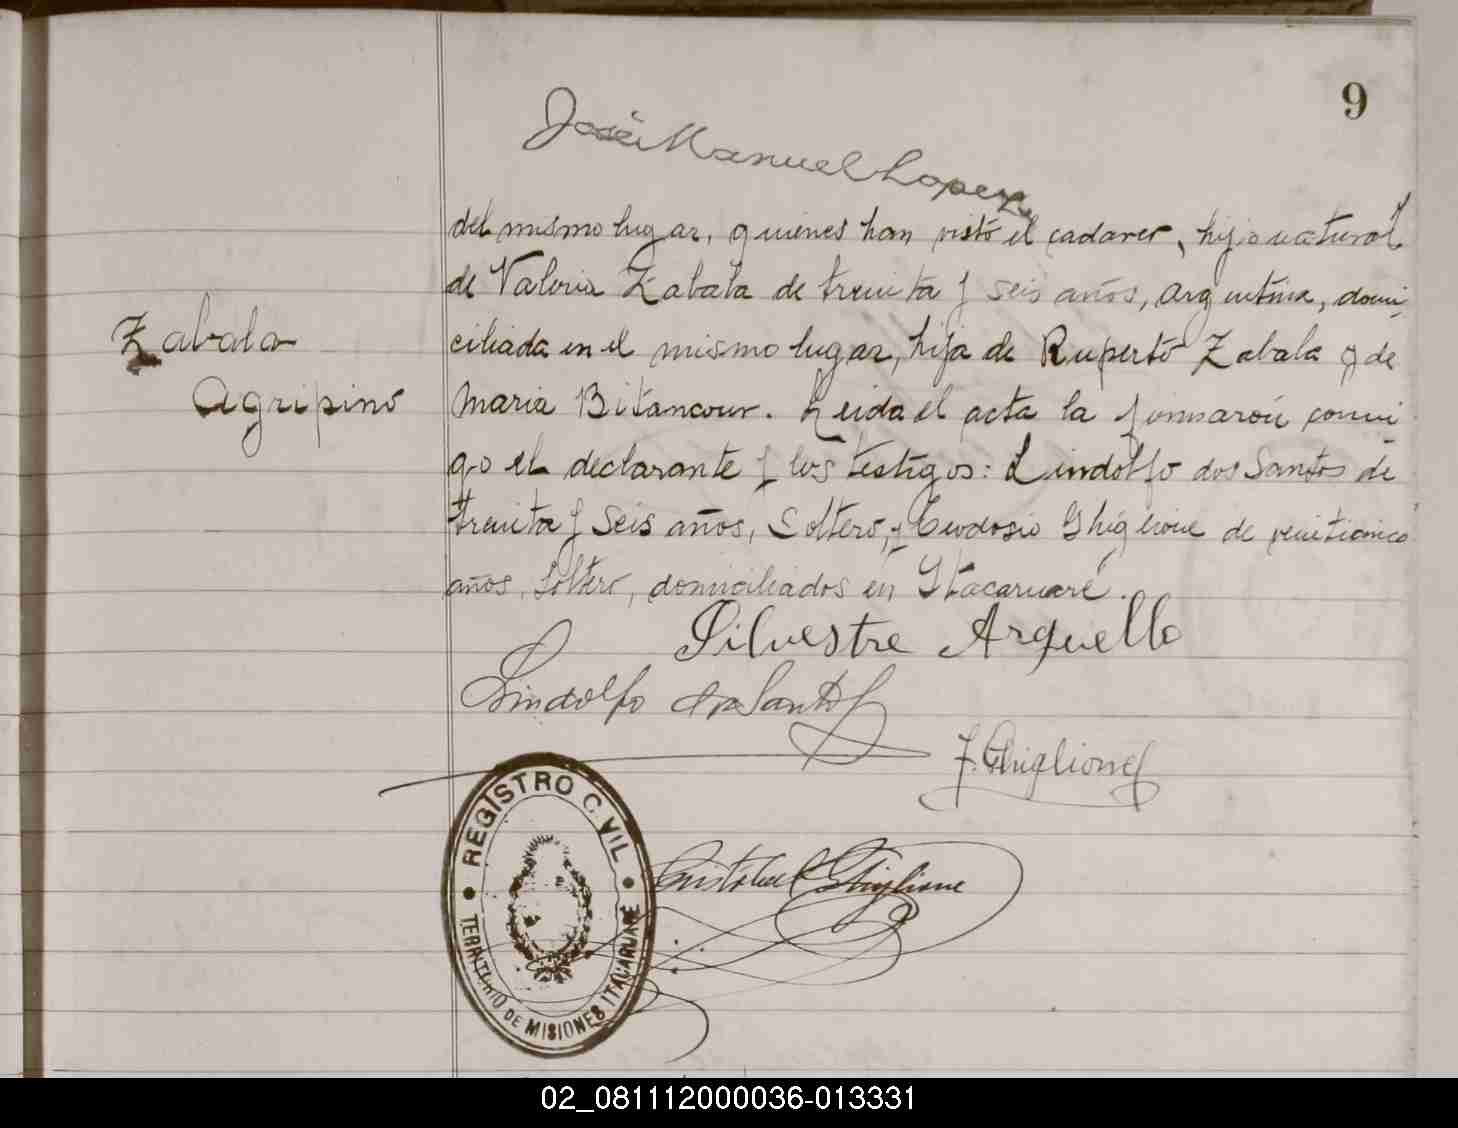 9
José Manuel Lopez
del mismo lugar, quienes han visto el cadaver, hijo natural
de Valeria Zabala de treinta y seis años, argentina, domi-
Zabala
ciliada en el mismo lugar, hija de Ruperto Zabala y de
Agripino
Maria Bitancour. Leida el acta la firmaron conmi-
go el declarante y los testigos: Lindolfo dos Santos de
treinta y seis años, Soltero, y Teodosio Ghiglione de veinticinco
años, Soltero, domiciliados en Itacaruaré.
Silvestre Arguello
Lindolfo dos Santos
Ghiglione
REGISTRO CIVIL
Cristobal Ghiglione
TERRITORIO DE MISIONES ITACARUARE
02_081112000036-013331